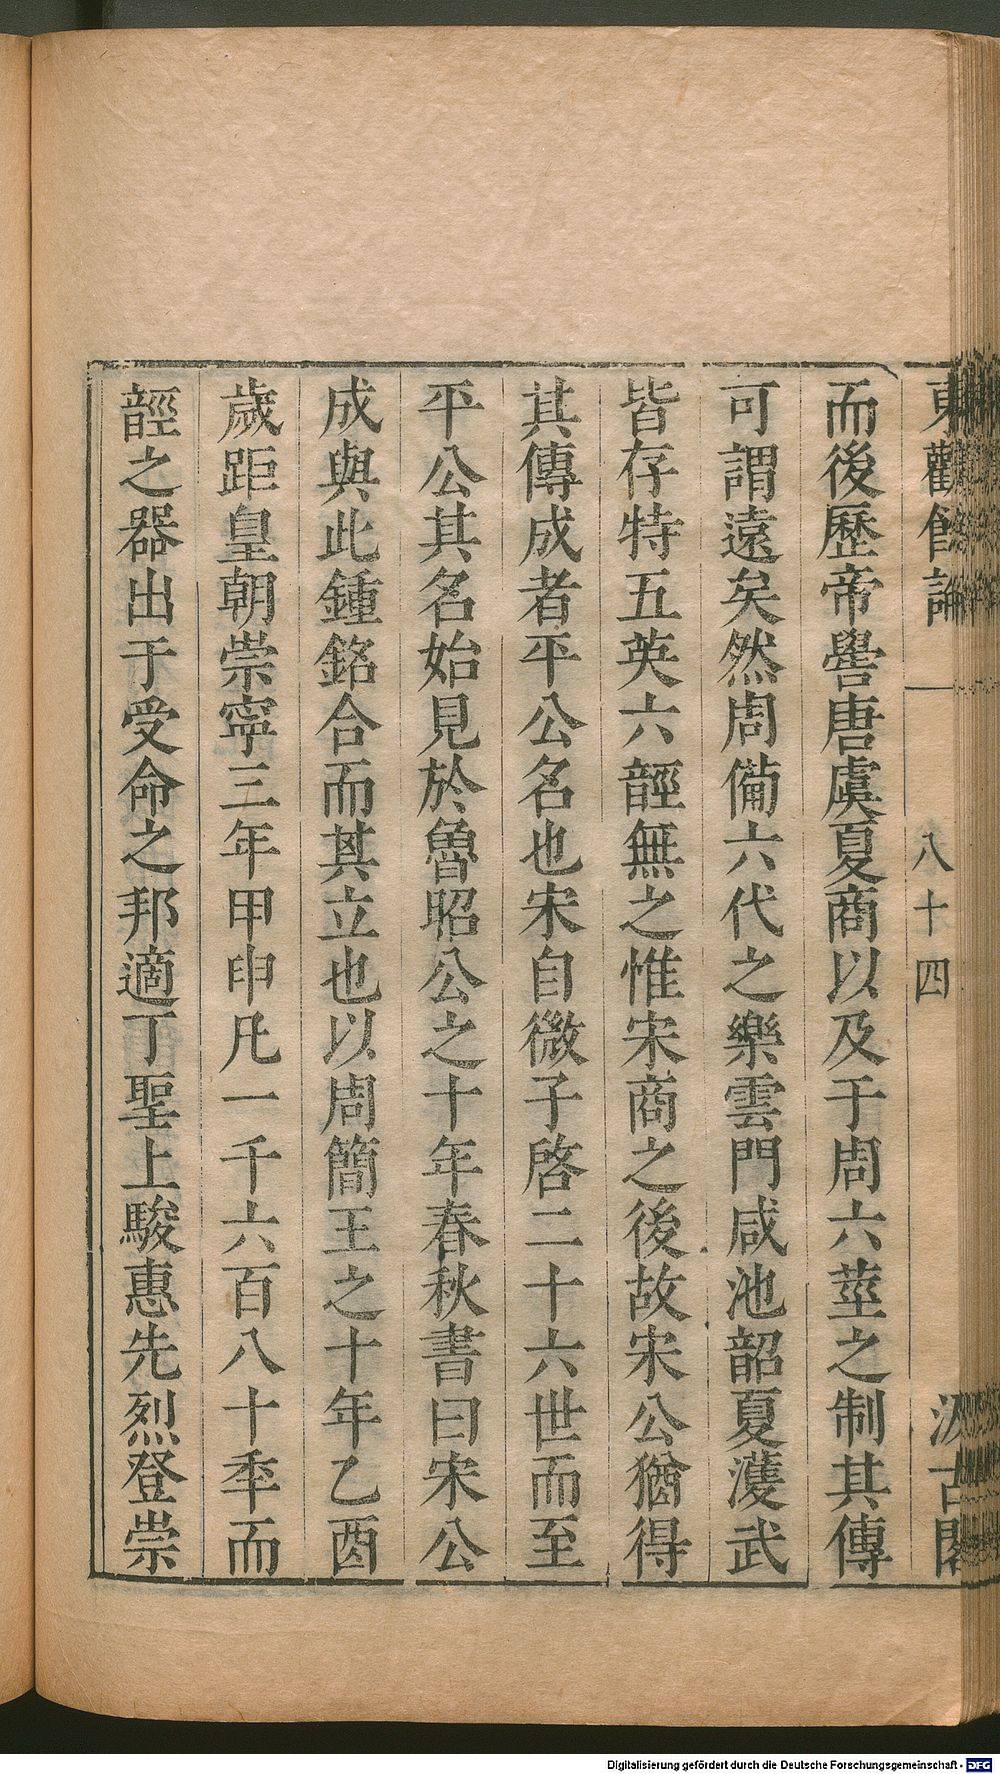 東觀餘論
八十四
汲古閣
而後歷帝嚳唐虞夏商以及于周六莖之制其傳
可謂遠矣然周備六代之樂雲門咸池韶夏濩武
皆存特五英六䪫無之惟宋商之後故宋公猶得
其傳成者平公名也宋自微子啓二十六世而至
平公其名始見於魯昭公之十年春秋書曰宋公
成與此鍾銘合而其立也以周簡王之十年乙酉
歲距皇朝崇寧三年甲申凡一千六百八十季而
䪫之器出于受命之邦適丁聖上駿惠先烈登崇
Digitalisierung gefördert durch die Deutsche Forschungsgemeinschaft - DFG